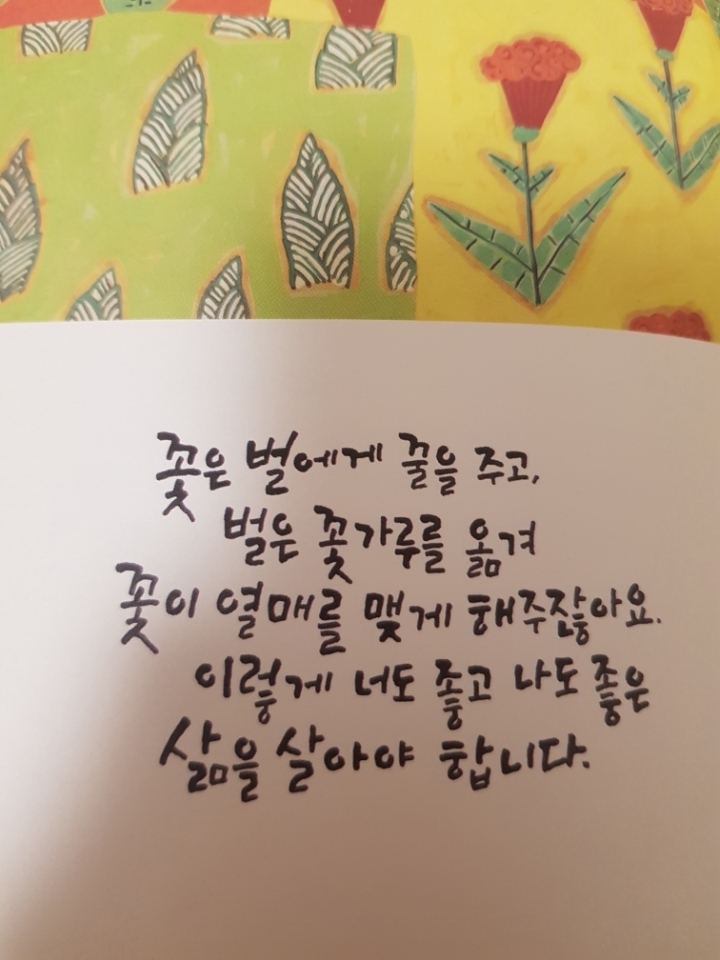 꽃은 벌에게 꿀을 주고,
벌은 꽃가루를 옮겨
꽃이 열매를 맺게 해주잖아요.
이렇게 너도 좋고 나도 좋은
삶을 살아야 합니다.